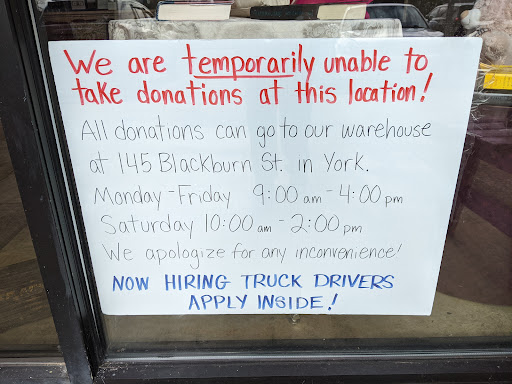 We are temporarily unable to
take donations at this location!
All donations can go to our warehouse
at 145 Blackburn St. in York.
Monday - Friday 9:00 am - 4:00 pm
Saturday 10:00 am - 2:00 pm
We apologize for any inconvenience!
NOW HIRING TRUCK DRIVERS
APPLY INSIDE!